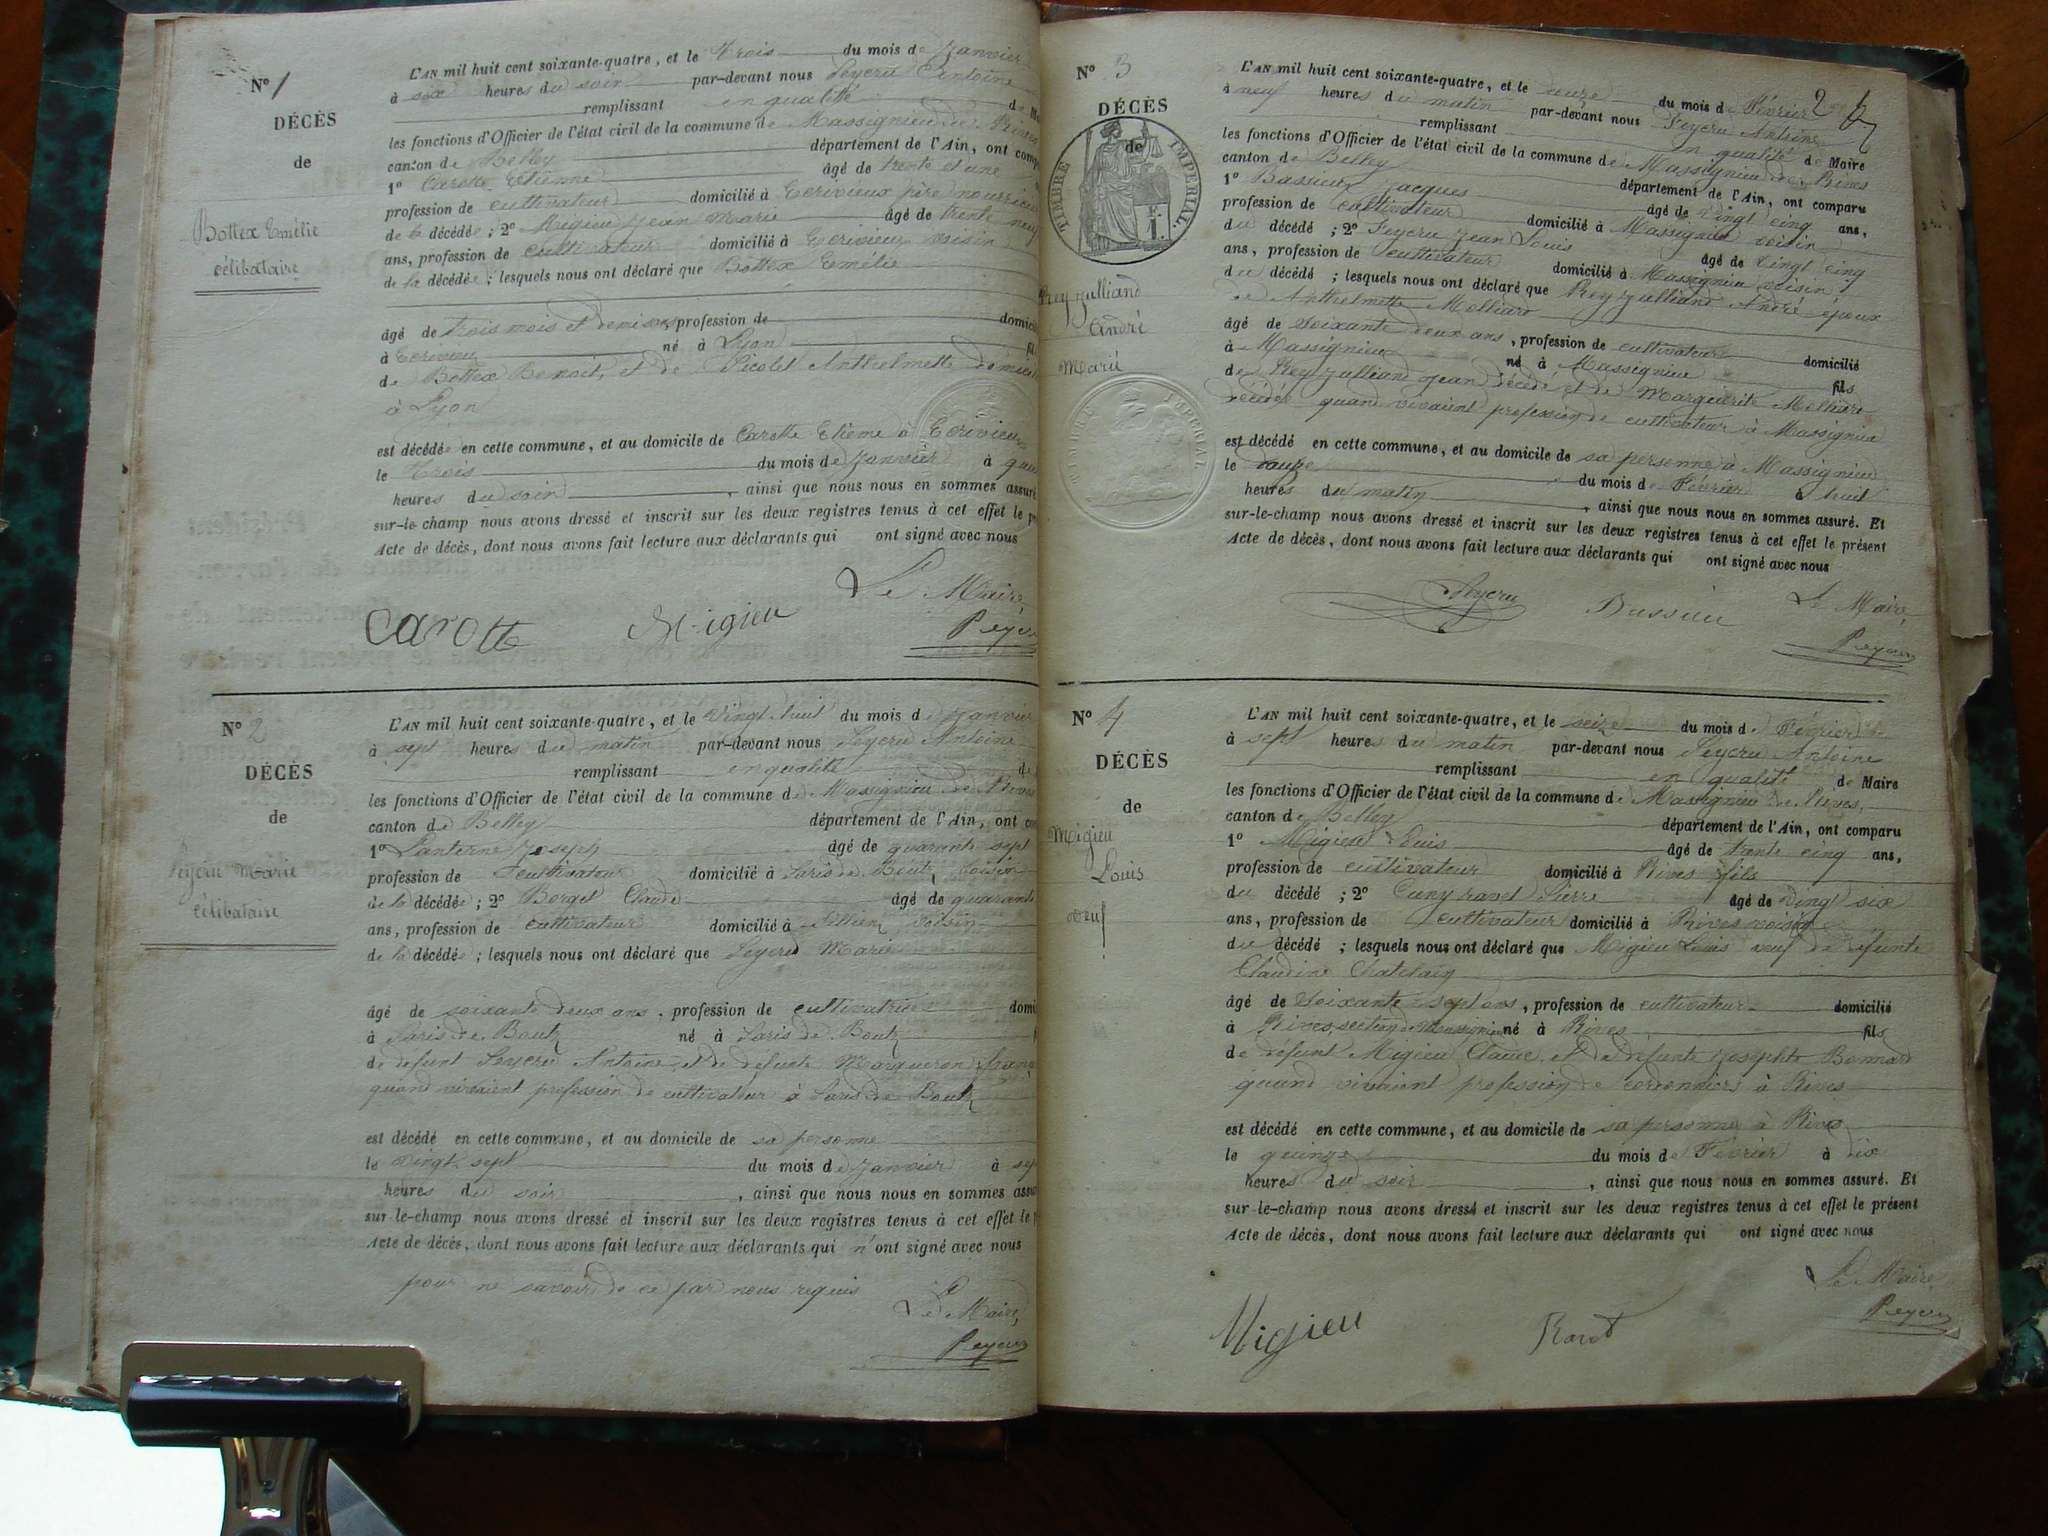 N° 1
DÉCÈS
de
Bottex Emélie
célibataire
L'AN mil huit cent soixante-quatre, et le trois du mois de Janvier
à six heures du soir par-devant nous Peycru Antoine
remplissant en qualité de
les fonctions d'Officier de l'état civil de la commune de Massignieu de Rives
canton de Belley département de l'Ain, ont
1° Carotte Etienne âgé de trente et une
profession de cultivateur domicilié à père nourricier
de la décédée ; 2° Migieu Jean Marie âgé de trente neuf
ans, profession de cultivateur domicilié à voisin
de la décédée ; lesquels nous ont déclaré que Bottex Emélie
âgé de trois mois et demi, profession de
à né à Lyon
de Bottex Benoit, et de Picolet Anthelmette
à Lyon
est décédée en cette commune, et au domicile de Carotte Etiene à
le trois du mois de Janvier à
heures du soir, ainsi que nous nous en sommes
sur-le-champ nous avons dressé et inscrit sur les deux registres tenus à cet effet le
Acte de décès, dont nous avons fait lecture aux déclarants qui ont signé avec nous
Le Maire,
Carotte Migieu Peycru
N° 2
DÉCÈS
de
Peycru Marie
Célibataire
L'AN mil huit cent soixante-quatre, et le vingt huit du mois de Janvier
à sept heures du matin par-devant nous Peycru Antoine
remplissant en qualité de
les fonctions d'Officier de l'état civil de la commune de Massignieu de Rives
canton de Belley département de l'Ain, ont
1° Lanterne Joseph âgé de quarante sept
profession de cultivateur domicilié à voisin
de la décédée ; 2° Borget Claude âgé de quarante
ans, profession de cultivateur domicilié à voisin
de la décédée ; lesquels nous ont déclaré que Peycru Marie
âgé de soixante deux ans, profession de cultivatrice
à né à
de défunt Peycru Antoine et de défunte Marqueron
quand vivaient profession de cultivateur à
est décédé en cette commune, et au domicile de sa personne
le vingt sept du mois de Janvier à
heures du soir, ainsi que nous nous en sommes
sur-le-champ nous avons dressé et inscrit sur les deux registres tenus à cet effet le
Acte de décès, dont nous avons fait lecture aux déclarants qui n'ont signé avec nous
pour ne savoir de ce par nous requis
Le Maire,
Peycru
N° 3
DÉCÈS
de
TIMBRE IMPÉRIAL
Rey Julliand
André
Marié
L'AN mil huit cent soixante-quatre, et le douze du mois de Février
à neuf heures du matin par-devant nous Peycru Antoine
remplissant en qualité de Maire
les fonctions d'Officier de l'état civil de la commune de Massignieu de Rives
canton de Belley département de l'Ain, ont comparu
1° Bassieux Jacques âgé de vingt cinq ans,
profession de cultivateur domicilié à Massignieu voisin
du décédé ; 2° Peycru Jean Louis âgé de vingt cinq
ans, profession de cultivateur domicilié à Massignieu voisin
du décédé ; lesquels nous ont déclaré que Rey Julliand André époux
de Anthelmette Molliard
âgé de soixante deux ans, profession de cultivateur domicilié
à Massignieu né à Massignieu fils
de Rey Julliand Jean décédé et de Marguerite Molliard
décédée quand vivaient profession de cultivateur à Massignieu
est décédé en cette commune, et au domicile de sa personne à Massignieu
le douze du mois de Février à huit
heures du matin, ainsi que nous nous en sommes assuré. Et
sur-le-champ nous avons dressé et inscrit sur les deux registres tenus à cet effet le présent
Acte de décès, dont nous avons fait lecture aux déclarants qui ont signé avec nous
Peycru Bassieu Le Maire,
Peycru
N° 4
DÉCÈS
de
Migieu
Louis
veuf
L'AN mil huit cent soixante-quatre, et le seize du mois de Février
à sept heures du matin par-devant nous Peycru Antoine
remplissant en qualité de Maire
les fonctions d'Officier de l'état civil de la commune de Massignieu de Rives
canton de Belley département de l'Ain, ont comparu
1° Migieu Louis âgé de trente cinq ans,
profession de cultivateur domicilié à Rives fils
du décédé ; 2° Cuny ravet Pierre âgé de vingt six
ans, profession de cultivateur domicilié à Rives voisin
du décédé ; lesquels nous ont déclaré que Migieu Louis veuf de défunte
Claudine Chatelain
âgé de soixante sept ans, profession de cultivateur domicilié
à Rives section de Massignieu né à Rives fils
de défunt Migieu Claude et de défunte Josephte Bonnard
quand vivaient profession de cordonniers à Rives
est décédé en cette commune, et au domicile de sa personne à Rives
le quinze du mois de Février à dix
heures du soir, ainsi que nous nous en sommes assuré. Et
sur-le-champ nous avons dressé et inscrit sur les deux registres tenus à cet effet le présent
Acte de décès, dont nous avons fait lecture aux déclarants qui ont signé avec nous
Le Maire
Migieu Ravet Peycru